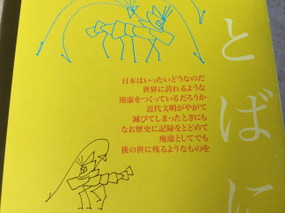 とばに
日本はいったいどうなのだ
世界に誇れるような
廃虚をつくっているだろうか
近代文明がやがて
滅びてしまったときにも
なお歴史に記録をとどめて
廃虚としてでも
後の世に残るようなものを